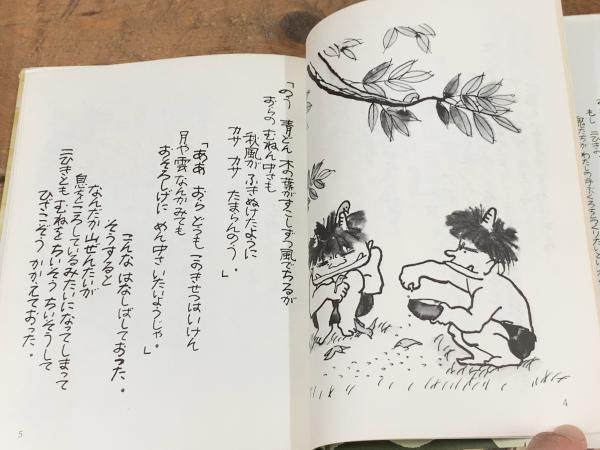 もし 二ひきの
「のう 青どん 木の葉がすこしずつ風でちるが
おらの むねん中さも
秋風がふきぬけたように
カサ カサ たまらんのう。」
「ああ おら どうも このきせつはいけん
月や雲なんかみても
おそろしげに めん中さいたいようじゃ。」
こんな はなしばしておった。
そうすると
なんだか山ぜんたいが
息をころしているみたいになってしまって
二ひきとも むねをちいそう ちいそうして
ひざこぞう かかえておった。
4
5